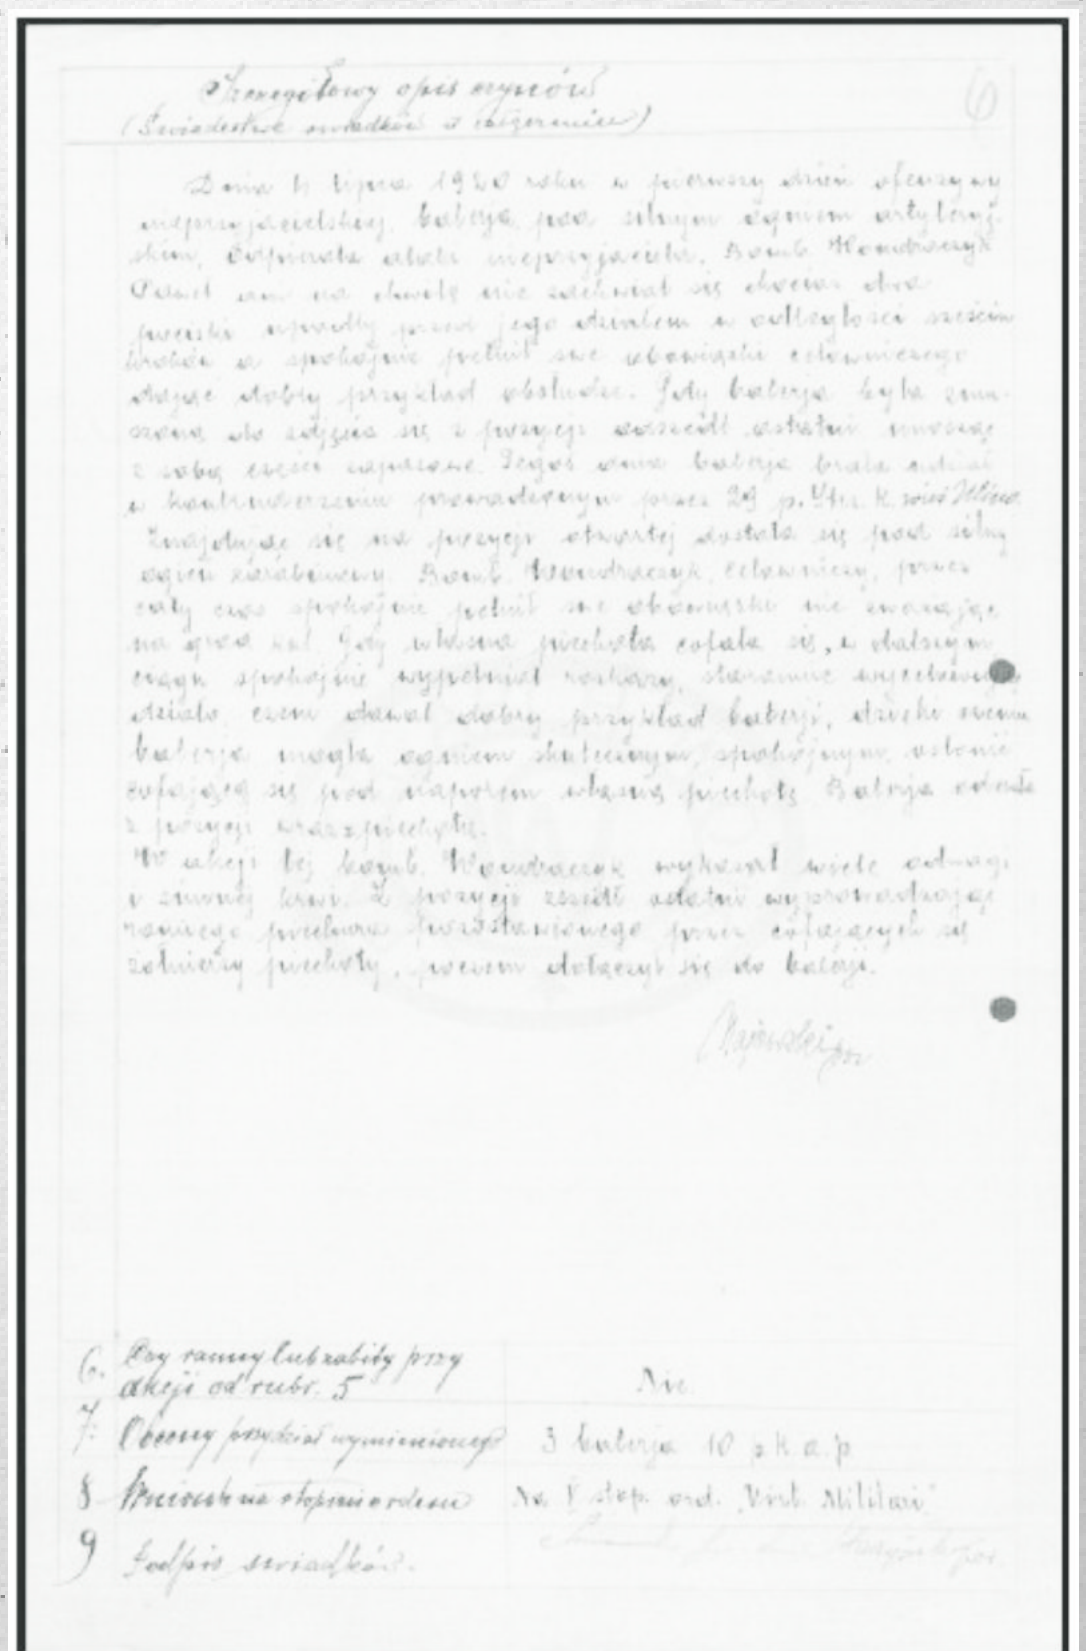 Szczegółowy opis czynów
(Świadectwo świadków w załączeniu)
6
Dnia 4 lipca 1920 roku w pierwszy dzień ofenzywy
nieprzyjacielskiej, baterja pod silnym ogniem artyleryj-
skim, odpierała ataki nieprzyjaciela. Bomb. Wondraczyk
Paweł ani na chwilę nie zachwiał się chociaż dwa
pociski upadły przed jego działem w odległości sześciu
kroków a spokojnie pełnił swe obowiązki celowniczego
dając dobry przykład obsłudze. Gdy baterja była zmu-
szoną do zdjęcia się z pozycji odszedł ostatni unosząc
z sobą części zapasowe. Tegoż dnia baterja brała udział
w kontruderzeniu prowadzonym przez 29 p. na wieś
Znajdując się na pozycji otwartej dostała się pod silny
ogień karabinowy. Bomb. Wondraczyk, celowniczy, przez
cały czas spokojnie pełnił swe obowiązki nie zważając
na grad kul. Gdy własna piechota cofała się, w dalszym
ciągu spokojnie wypełniał rozkazy, starannie
działo, czem dawał dobry przykład baterji, dzięki czemu
baterja mogła ogniem skutecznym, spokojnym, osłonić
cofającą się pod naporem własną piechotę. Baterja
z pozycji wraz z piechotą.
W akcji tej bomb. Wondraczyk wykazał wiele odwagi
i zimnej krwi. Z pozycji zszedł ostatni wyprowadzając
rannego piechura pozostawionego przez cofających się
żołnierzy piechoty, poczem dołączył się do baterji.
Majewski por
6. Czy ranny lub zabity przy
akcji od rubr. 5
Nie.
7. Obecny przydział wymienionego
3 baterja 10 p k a. p
8 Wniosek na stopnie orderu
Na V stop. ord. "Virt. Militari"
9 Podpis świadków.
por.